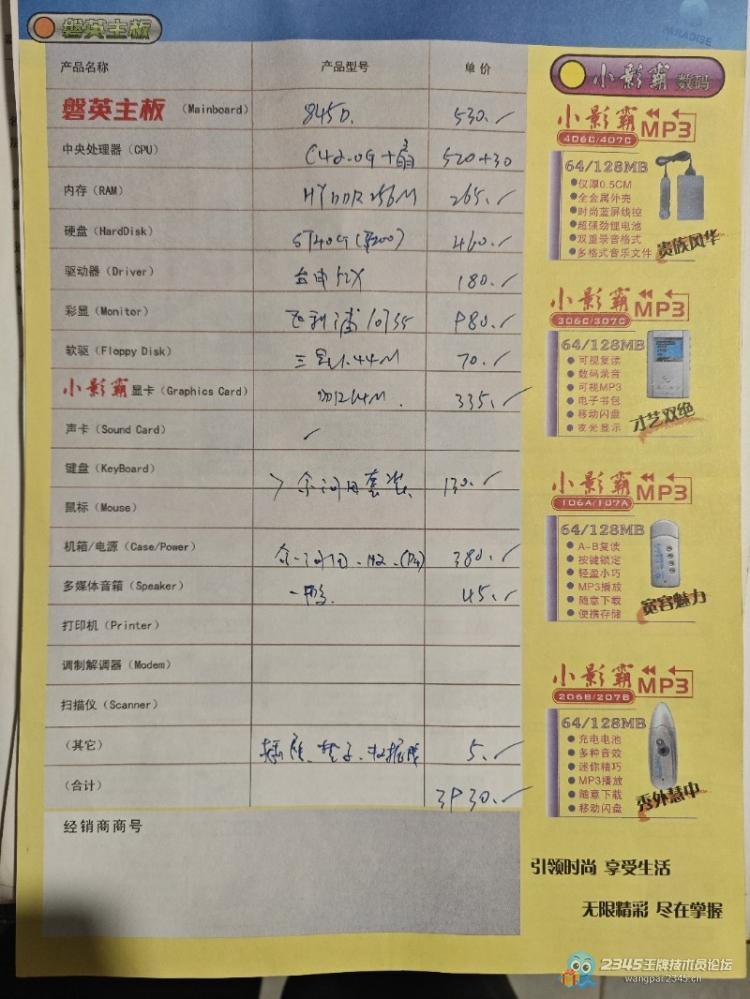 磐英主板
PARADISE
产品名称 产品型号 单价
磐英主板 (Mainboard) 845D. 530.✓
中央处理器 (CPU) C4 2.0G+扇 520+30
内存 (RAM) HY DDR 256M 265.✓
硬盘 (HardDisk) ST40G 460.✓
驱动器 (Driver) 台电52X 180.✓
彩显 (Monitor) 飞利浦107S5 980.✓
软驱 (Floppy Disk) 三星1.44M 70.✓
小影霸 显卡 (Graphics Card) 64M. 335.✓
声卡 (Sound Card) ✓
键盘 (KeyBoard) 套装. 130.✓
鼠标 (Mouse)
机箱/电源 (Case/Power) (P4) 380.✓
多媒体音箱 (Speaker) 45.✓
打印机 (Printer)
调制解调器 (Modem)
扫描仪 (Scanner)
(其它) 5.✓
(合计) 3930.✓
经销商商号
小影霸 数码
小影霸 MP3
406C/407C
64/128MB
●仅厚0.5CM
●全金属外壳
●时尚蓝屏线控
●超强劲锂电池
●双重录音格式
●多格式音乐文件
贵族风华
小影霸 MP3
306C/307C
64/128MB
●可视复读
●数码录音
●可视MP3
●电子书包
●移动闪盘
●夜光显示
才艺双绝
小影霸 MP3
106A/107A
64/128MB
●A-B复读
●按键锁定
●轻盈小巧
●MP3播放
●随意下载
●便携存储
宽容魅力
小影霸 MP3
206B/207B
64/128MB
●充电电池
●多种音效
●迷你精巧
●MP3播放
●随意下载
●移动闪盘
秀外慧中
引领时尚 享受生活
无限精彩 尽在掌握
2345王牌技术员论坛
wangpai.2345.cn